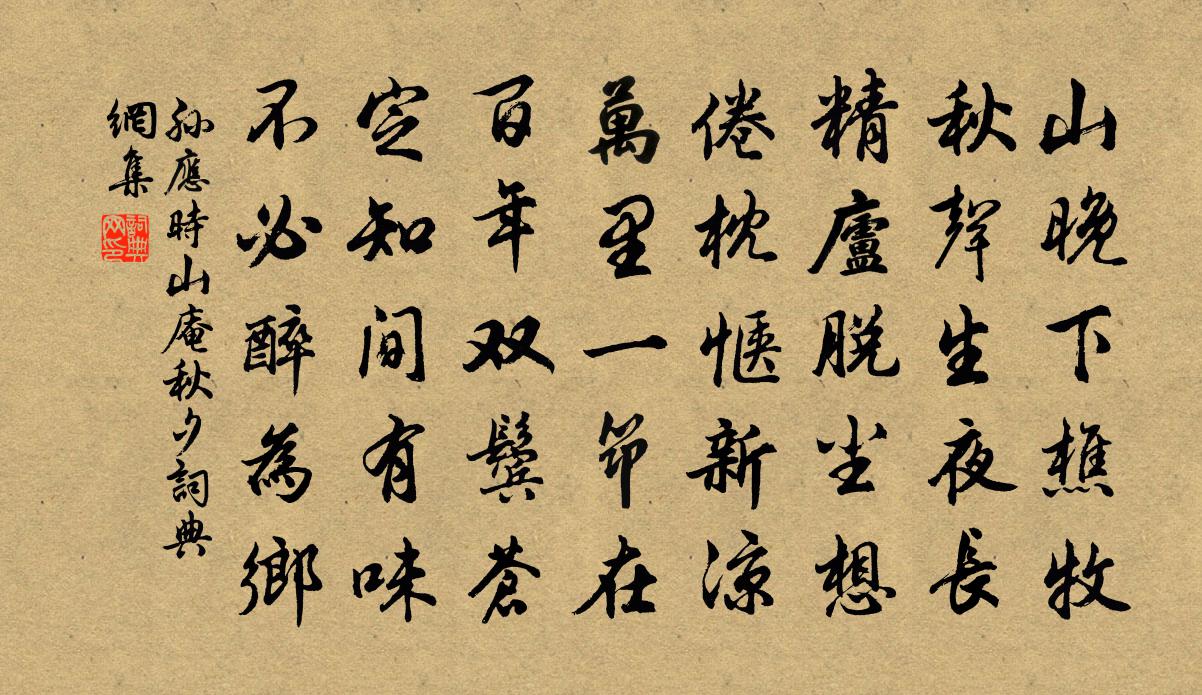 山晚下樵牧
秋聲生夜長
精廬脫尘想
倦枕惬新涼
萬里一笻在
百年双鬓蒼
定知间有味
不必醉為鄉
孙應時山庵秋夕詞典
網集
詞典网印